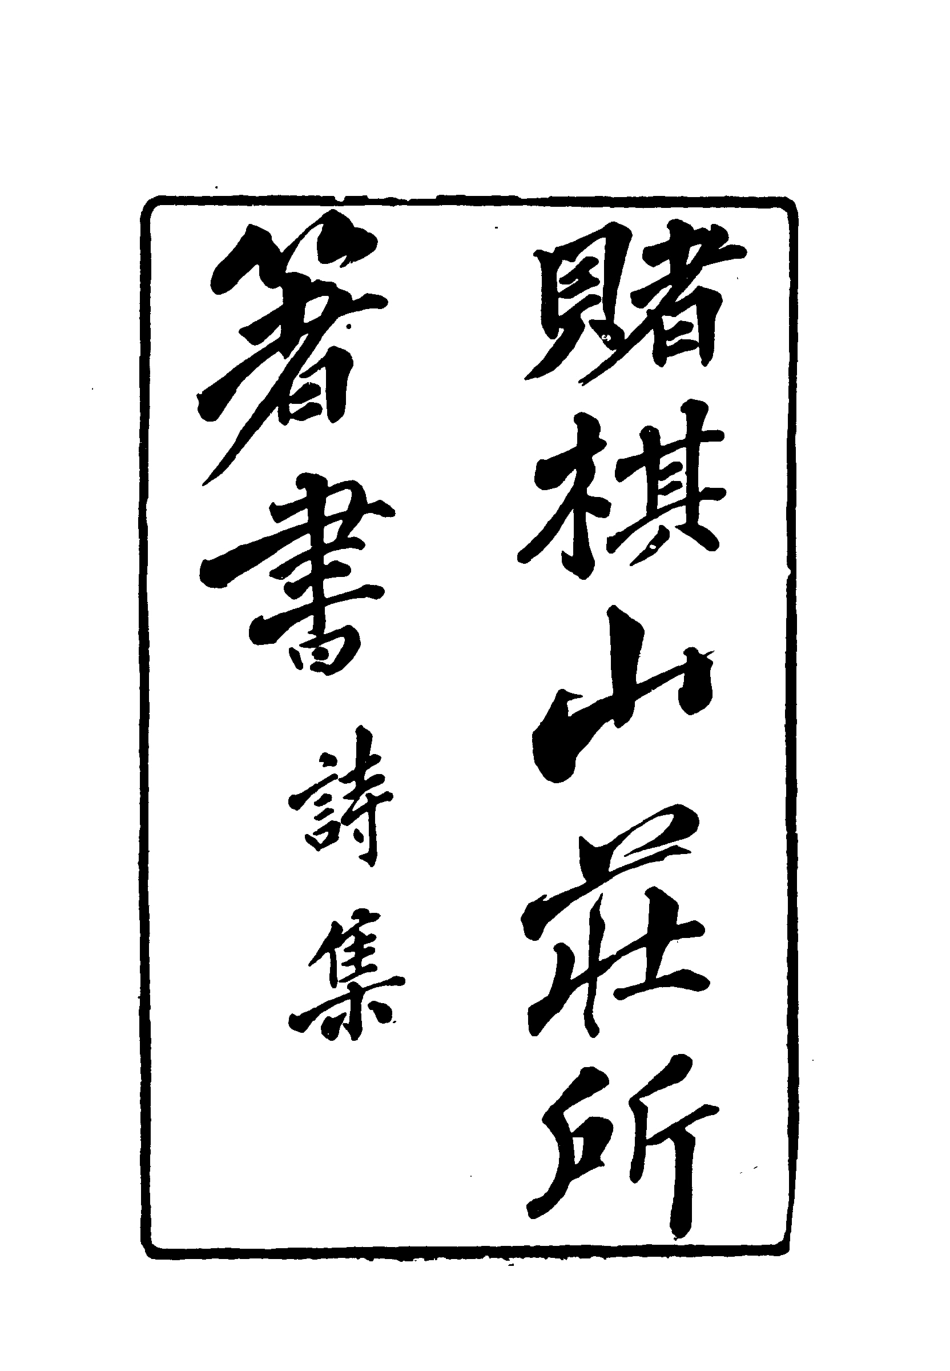 賭棋山莊所
箸書詩集